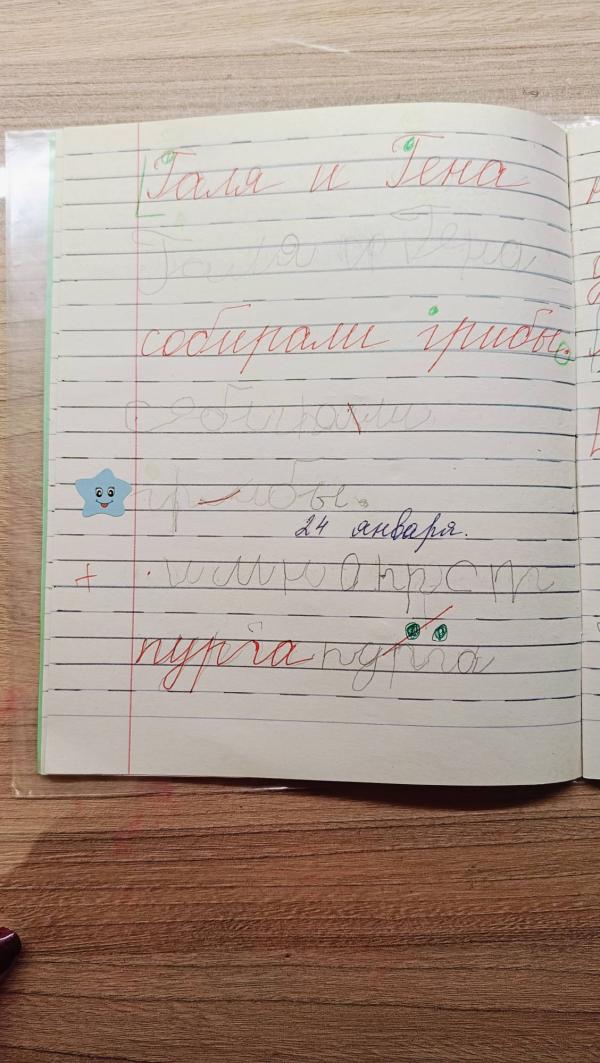 Галя и Гена
Галя и Гена
собирали грибы.
сябирали
грибы.
24 января.
и л м н о п р с т
пурга пурга